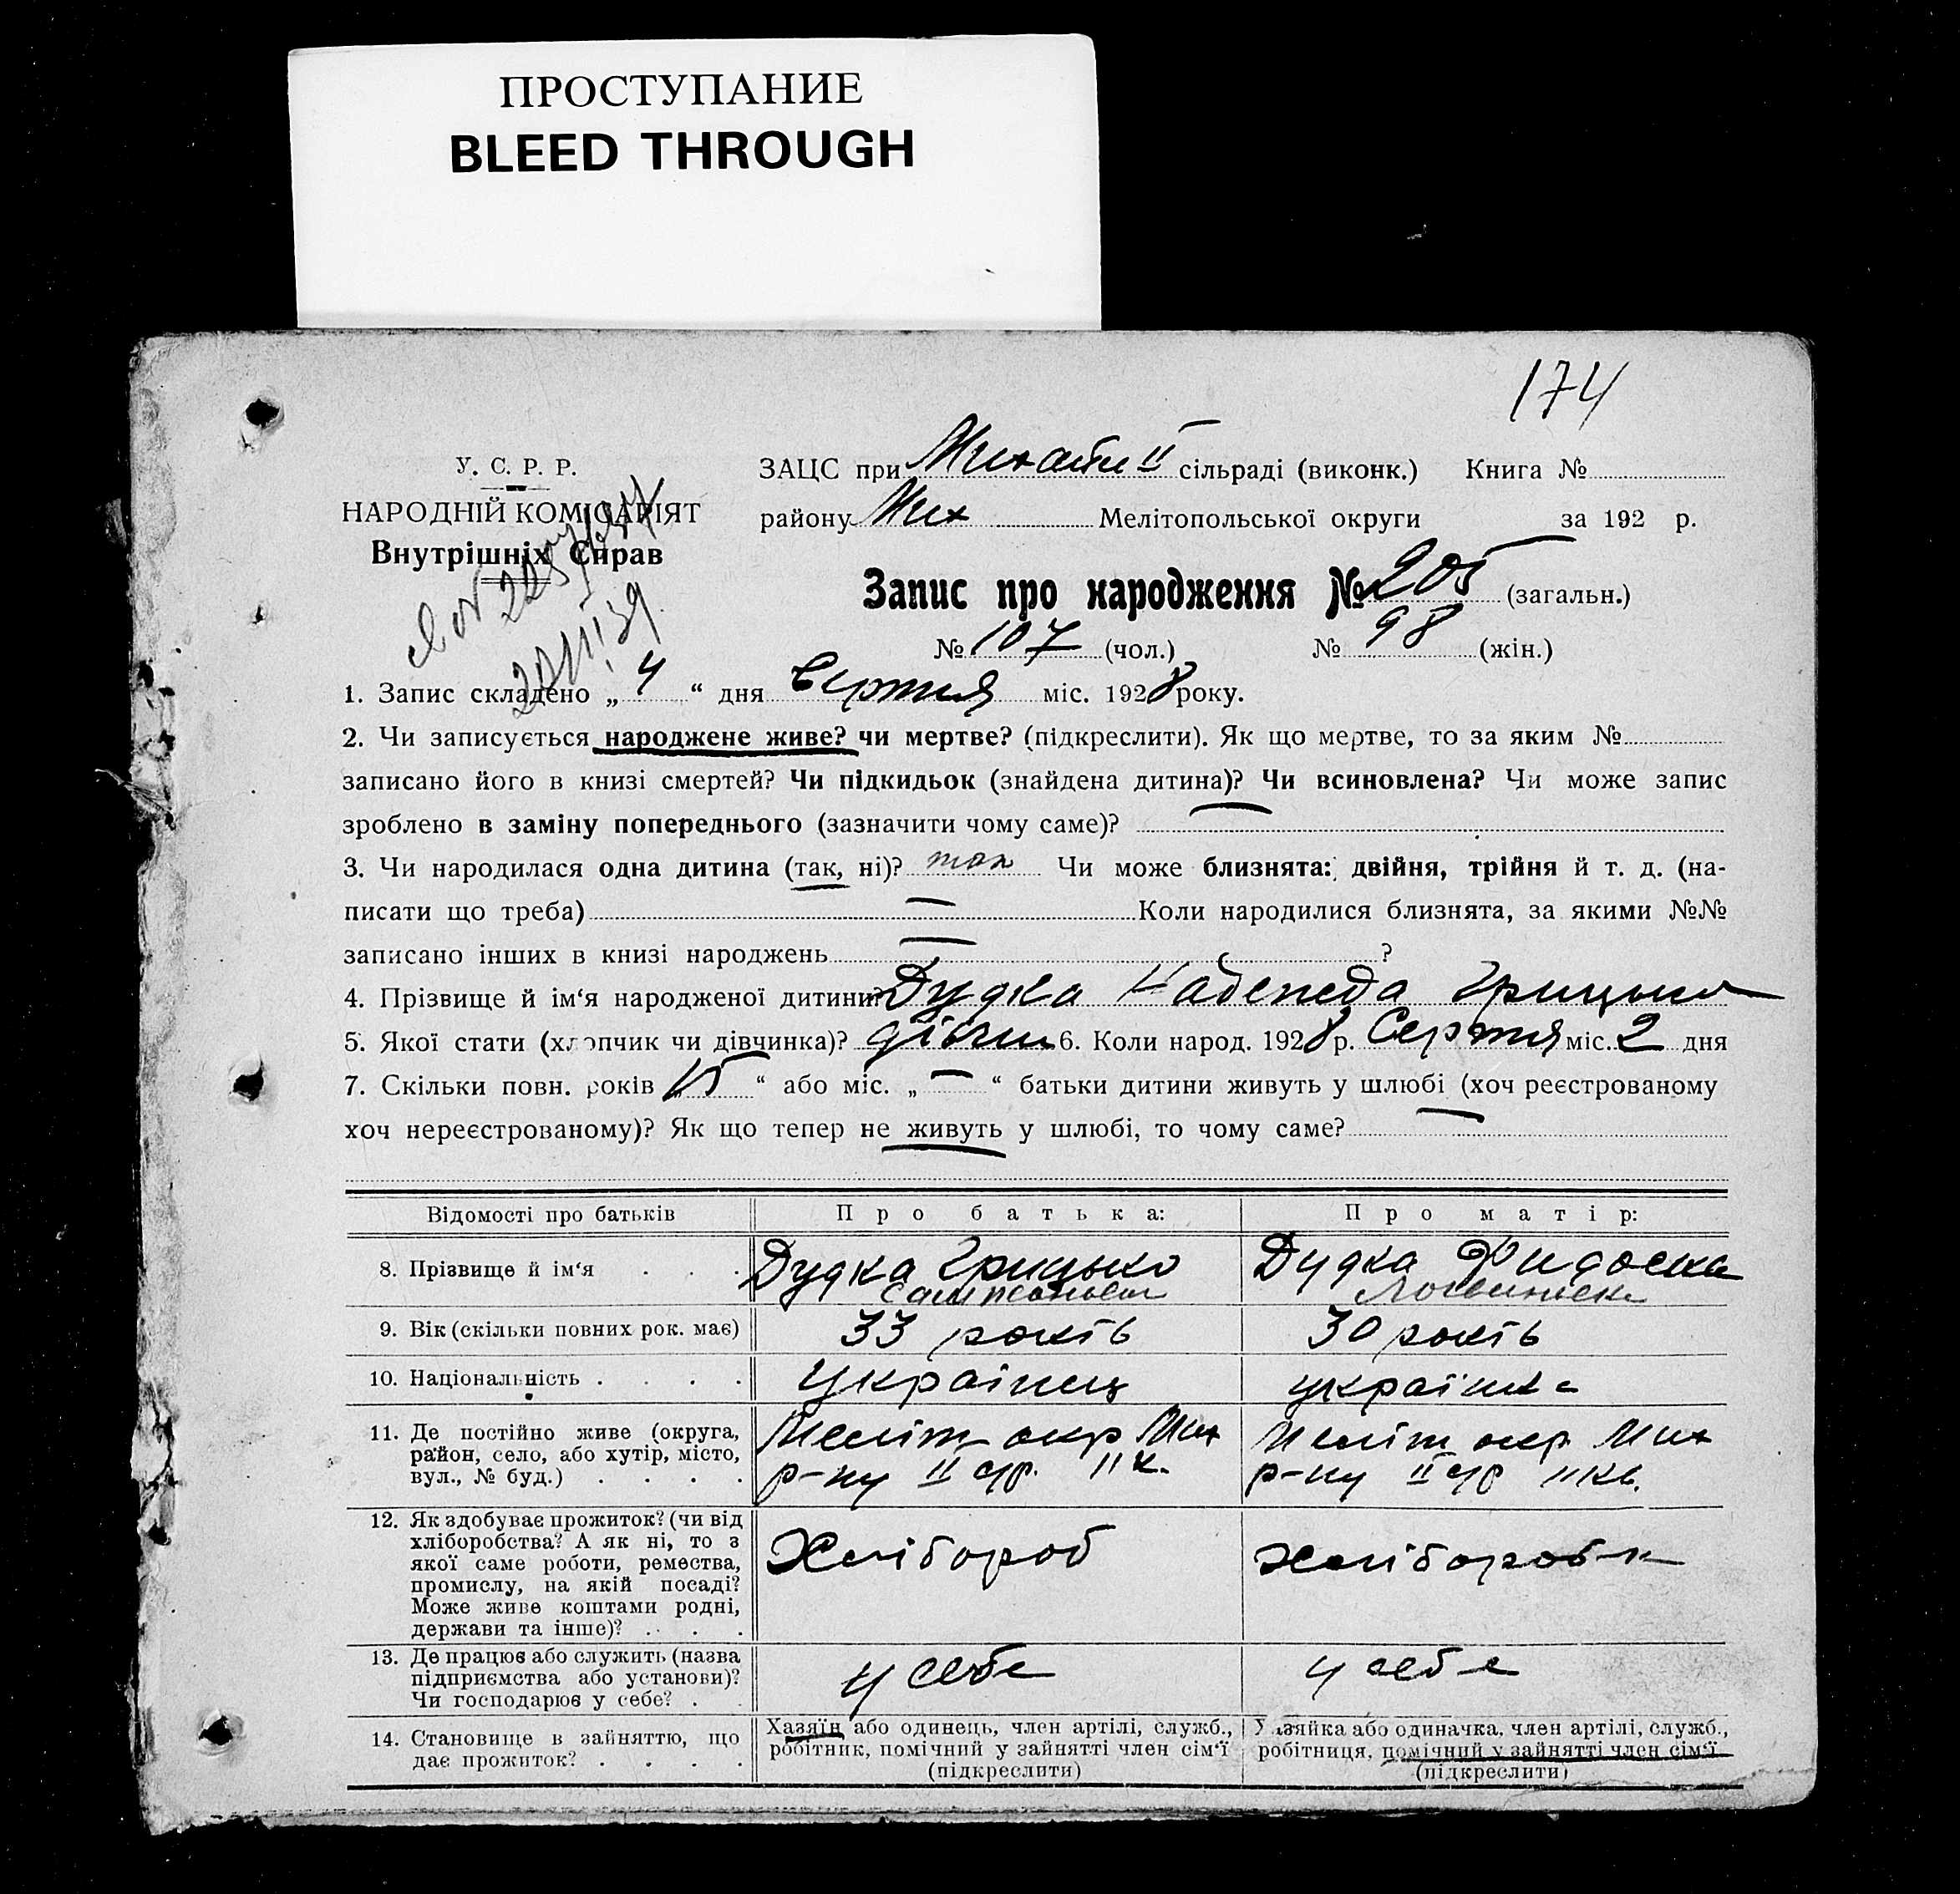 ПРОСТУПАНИЕ
BLEED THROUGH
174
У. С. Р. Р.
НАРОДНІЙ КОМІСАРІЯТ
Внутрішніх Справ
ЗАЦС при II сільраді (виконк.) Книга №
району Мих Мелітопольської округи за 192 р.
Запис про народження № 205 (загальн.)
№ 107 (чол.) № 98 (жін.)
1. Запис складено „ 4 “ дня Серпня міс. 1928 року.
2. Чи записується народжене живе? чи мертве? (підкреслити). Як що мертве, то за яким №
записано його в книзі смертей? Чи підкидьок (знайдена дитина)? Чи всиновлена? Чи може запис
зроблено в заміну попереднього (зазначити чому саме)? —
3. Чи народилася одна дитина (так, ні)? так Чи може близнята: двійня, трійня й т. д. (на-
писати що треба) — Коли народилися близнята, за якими №№
записано інших в книзі народжень — ?
4. Прізвище й ім‘я народженої дитини? Дудка Надежда
5. Якої стати (хлопчик чи дівчинка)? дівчи 6. Коли народ. 1928 р. Серпня міс. 2 дня
7. Скільки повн. років „ 15 “ або міс. „ — “ батьки дитини живуть у шлюбі (хоч реєстрованому
хоч нереєстрованому)? Як що тепер не живуть у шлюбі, то чому саме? —
Відомості про батьків Про батька: Про матір:
8. Прізвище й ім‘я . . . Дудка Грицько Дудка
9. Вік (скільки повних рок. має) 33 років 30 років
10. Національність . . . . українец українка
11. Де постійно живе (округа,
район, село, або хутір, місто,
вул., № буд.) . . . .
Меліт окр Мих
р-ну II с/р. 11 к.
Меліт окр Мих
р-ну II с/р 11 кв.
12. Як здобуває прожиток? (чи від
хліборобства? А як ні, то з
якої саме роботи, ремества,
промислу, на якій посаді?
Може живе коштами родні,
держави та інше)? . . .
Хлібороб
хлібороб-к
13. Де працює або служить (назва
підприємства або установи)?
Чи господарює у себе? . .
у себе
у себе
14. Становище в зайняттю, що
дає прожиток? . . . .
Хазяїн або одинець, член артілі, служб.,
робітник, помічний у зайнятті член сім‘ї
(підкреслити)
Хазяйка або одиначка, член артілі, служб.,
робітниця, помічний у зайнятті член сім‘ї
(підкреслити)